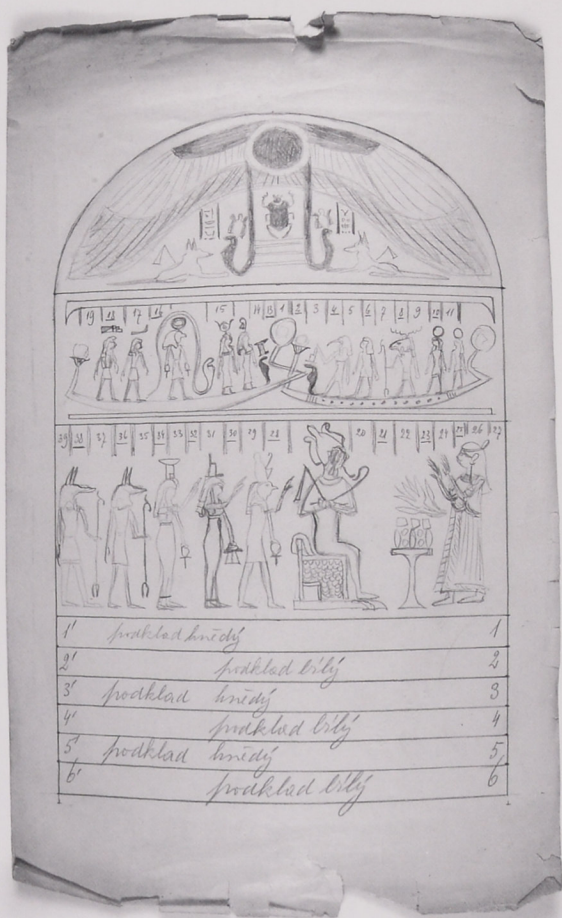 19 18 17 16 15 14 13 1 2 3 4 5 6 7 8 9 10 11
39 38 37 36 35 34 33 32 31 30 29 28 20 21 22 23 24 25 26 27
1' podklad hnědý 1
2' podklad bílý 2
3' podklad hnědý 3
4' podklad bílý 4
5' podklad hnědý 5
6' podklad bílý 6